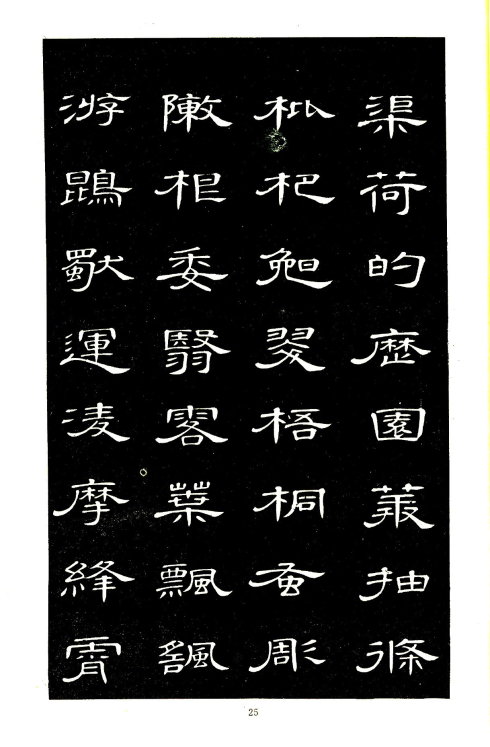 渠荷的歷園抽條
枇杷晚翠梧桐蚤彫
敶根委翳葉飄颻
游鵾獨運凌摩絳霄
25